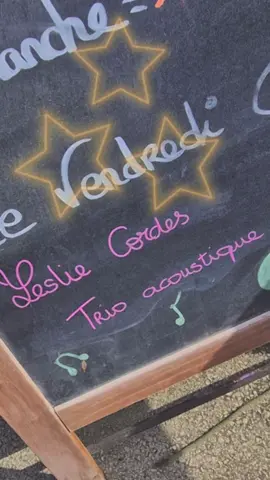 manche =
Vendredi
Leslie Cordes
Trio acoustique